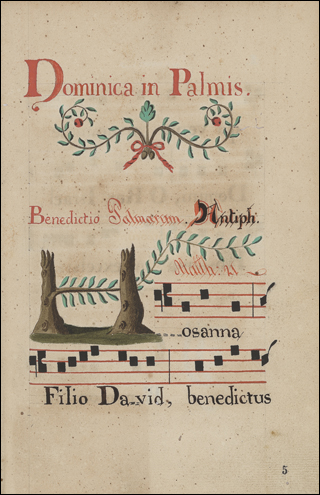 Dominica in Palmis.
Benedictio Palmarum. Antiph.
Matth: 21
Hosanna
Filio Da-vid, benedictus
5